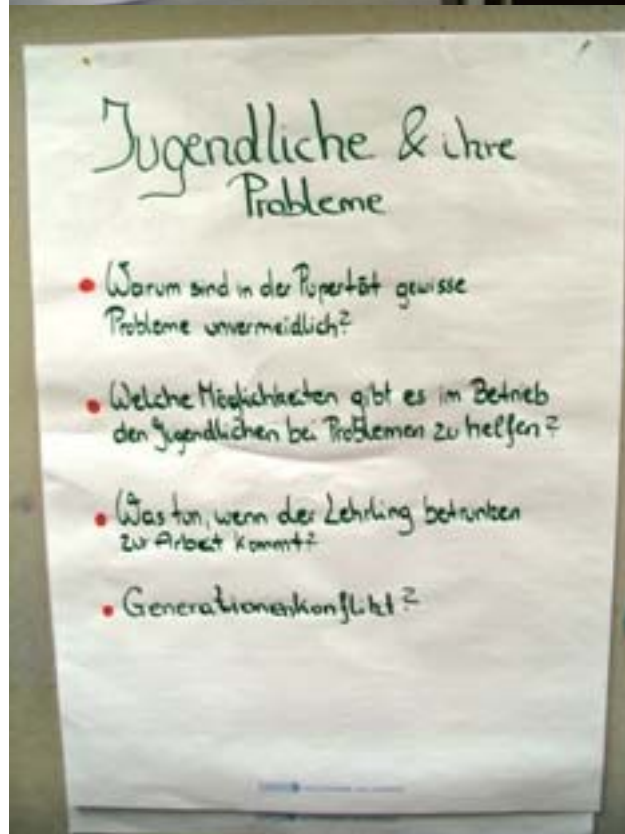 Jugendliche & ihre
Probleme
Warum sind in der Pupertät gewisse
Probleme unvermeidlich?
Welche Möglichkeiten gibt es im Betrieb
den Jugendlichen bei Problemen zu helfen?
Was tun, wenn der Lehrling betrunken
zur Arbeit kommt?
Generationenkonflikt?